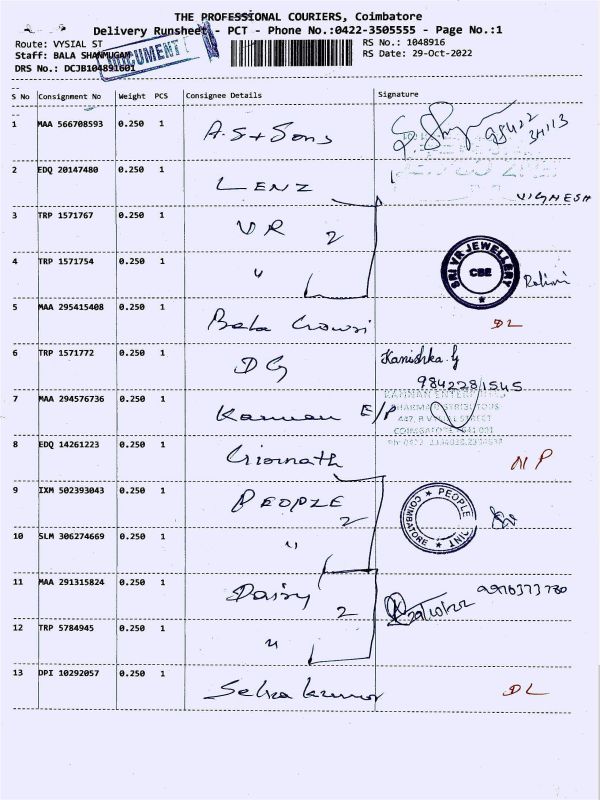 THE PROFESSIONAL COURIERS, Coimbatore
Delivery Runsheet - PCT - Phone No.:0422-3505555 - Page No.:1
Route: VYSIAL ST
RS No.: 1048916
Staff: BALA SHANMUGAM
RS Date: 29-Oct-2022
DRS No.: DCJB104891601
DOCUMENT
S No Consignment No Weight PCS Consignee Details Signature
1 MAA 566708593 0.250 1 A.S + Sons
2 EDQ 20147480 0.250 1 LENZ VIGNESH
3 TRP 1571767 0.250 1 VR 2
4 TRP 1571754 0.250 1 "
SRI VR JEWELLERY
CBE
5 MAA 295415408 0.250 1 Bala Gowri DL
6 TRP 1571772 0.250 1 DG Kanishka.G
9842281545
7 MAA 294576736 0.250 1 Kannan E/P
KANNAN ENTERPRISES
PHARMA DISTRIBUTORS
COIMBATORE 641 001
8 EDQ 14261223 0.250 1 NP
9 IXM 502393043 0.250 1 PEOPLE 2
PEOPLE
COIMBATORE
10 SLM 306274669 0.250 1 "
11 MAA 291315824 0.250 1 Daisy 2
29/10/22
12 TRP 5784945 0.250 1 "
13 DPI 10292057 0.250 1 Selva kumar DL